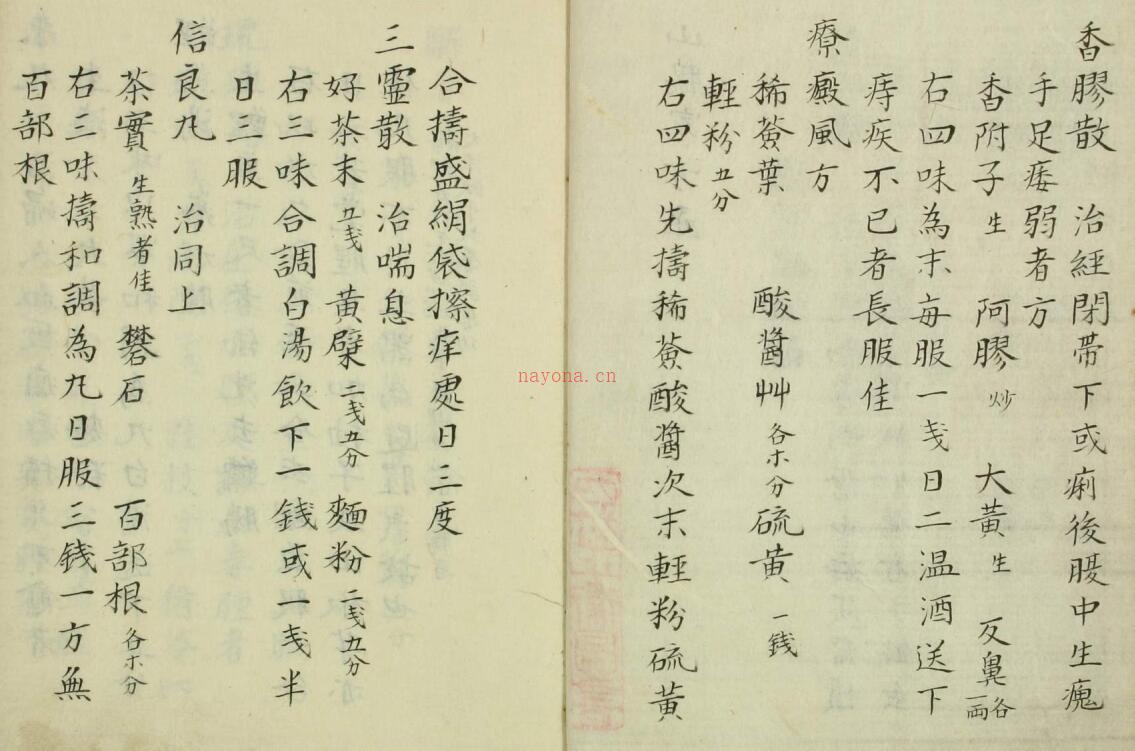 香膠散　治經閉帶下或痢後腰中生瘣
手足痿弱者方
香附子生　阿膠炒　大黄生　反鼻各一両
右四味為末毎服一戔日二温酒送下
痔疾不已者長服佳
療癜風方
豨薟葉　酸醬艸各等分　硫黄一錢
輕粉五分
右四味先擣豨薟酸醬次末輕粉硫黄
合擣盛絹袋擦痒處日三度
三靈散　治喘息
好茶末五戔　黄糪二戔五分　麵粉二戔五分
右三味合調白湯飲下一錢或一戔半
日三服
信良丸　治同上
茶實生熟者佳　礬石　百部根各等分
右三味擣和調為丸日服三錢一方無
百部根
nayona.cn